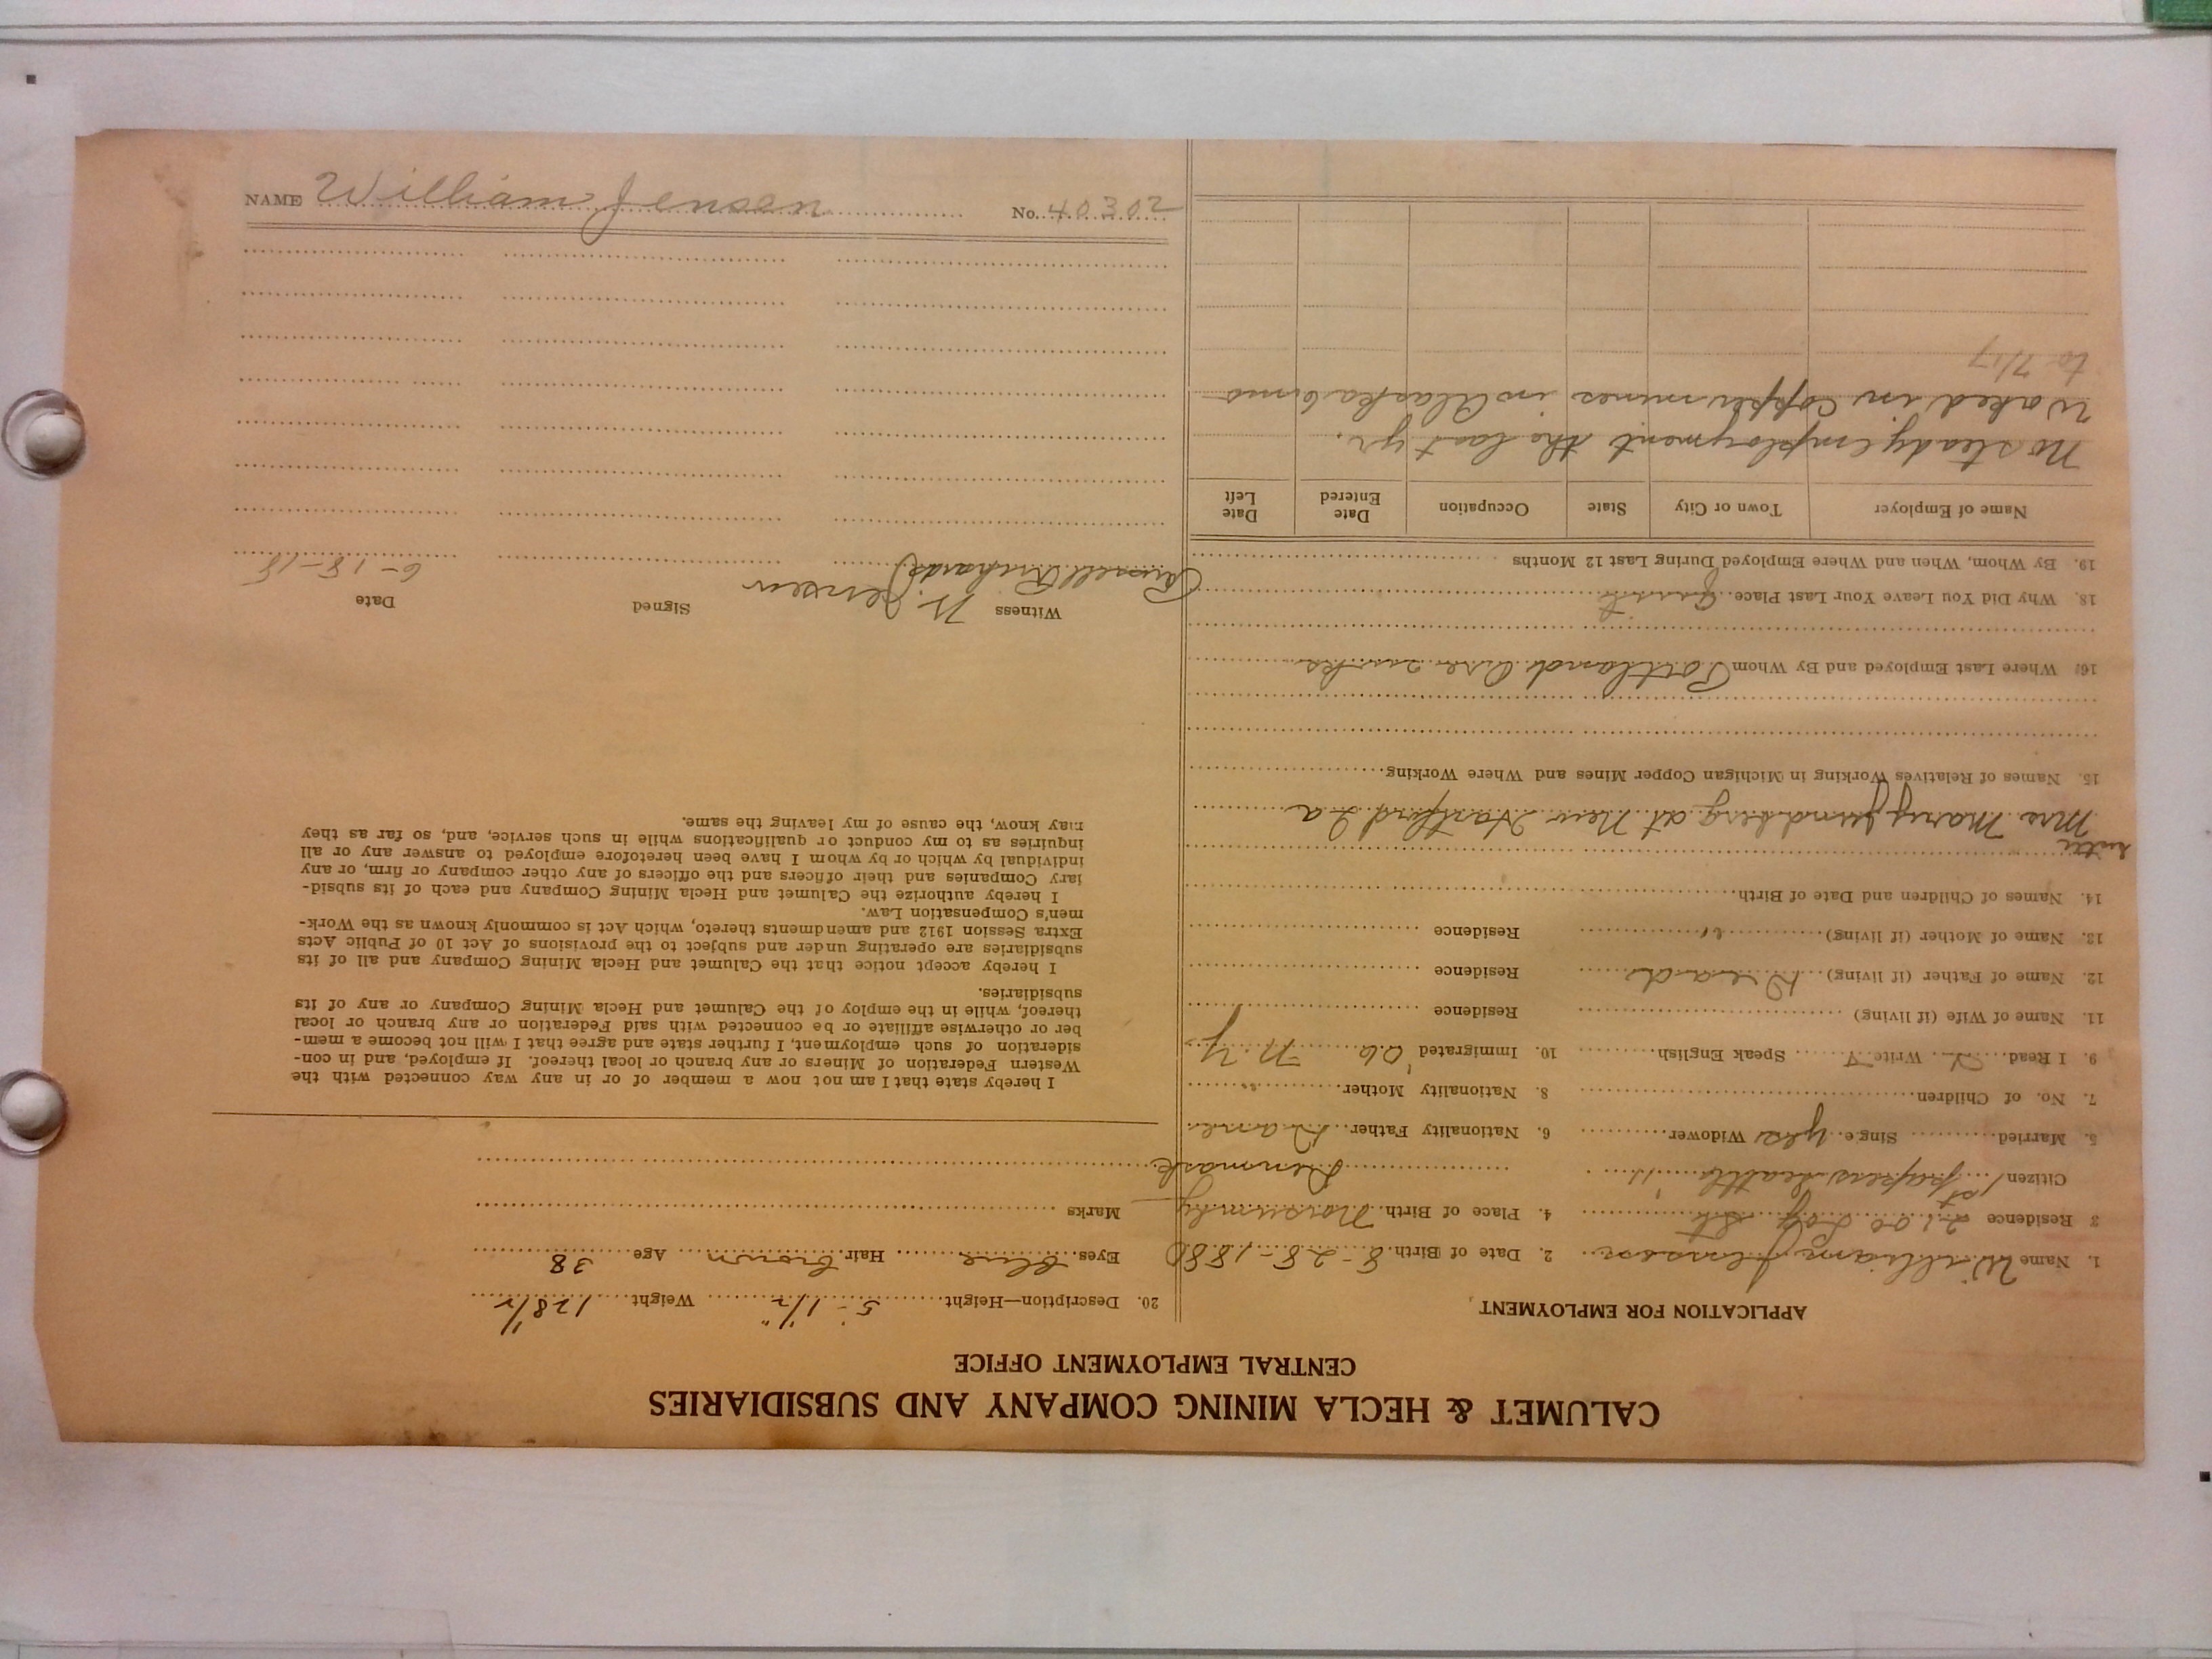 CALUMET & HECLA MINING COMPANY AND SUBSIDIARIES
CENTRAL EMPLOYMENT OFFICE
APPLICATION FOR EMPLOYMENT
1. Name William Jensen 2. Date of Birth 8-28-1880
3 Residence 2100 St 4. Place of Birth
Citizen 1st papers Seattle Denmark
5. Married Single yes Widower 6. Nationality Father Dane
7. No. of Children 8. Nationality Mother "
9. I Read Write Speak English 10. Immigrated '06 N.Y
11. Name of Wife (if living) Residence
12. Name of Father (if living) Dead Residence
13. Name of Mother (if living) " Residence
14. Names of Children and Date of Birth
sister
Mrs Mary Lundberg at New Hartford Ia
15. Names of Relatives Working in Michigan Copper Mines and Where Working
16. Where Last Employed and By Whom Portland Ore
18. Why Did You Leave Your Last Place Quit
19. By Whom, When and Where Employed During Last 12 Months
Name of Employer Town or City State Occupation Date Entered Date Left
No steady employment the last yr.
Worked in copper mines in Alaska 6 mo
to 7/17
20. Description—Height 5'-1 1/2" Weight 128 1/2
Eyes blue Hair brown Age 38
Marks
I hereby state that I am not now a member of or in any way connected with the
Western Federation of Miners or any branch or local thereof. If employed, and in con-
sideration of such employment, I further state and agree that I will not become a mem-
ber or otherwise affiliate or be connected with said Federation or any branch or local
thereof, while in the employ of the Calumet and Hecla Mining Company or any of its
subsidiaries.
I hereby accept notice that the Calumet and Hecla Mining Company and all of its
subsidiaries are operating under and subject to the provisions of Act 10 of Public Acts
Extra Session 1912 and amendments thereto, which Act is commonly known as the Work-
men's Compensation Law.
I hereby authorize the Calumet and Hecla Mining Company and each of its subsid-
iary Companies and their officers and the officers of any other company or firm, or any
individual by which or by whom I have been heretofore employed to answer any or all
inquiries as to my conduct or qualifications while in such service, and, so far as they
may know, the cause of my leaving the same.
Witness Signed Date
Russell Richards W. Jensen 6-18-18
NAME William Jensen No. 40302